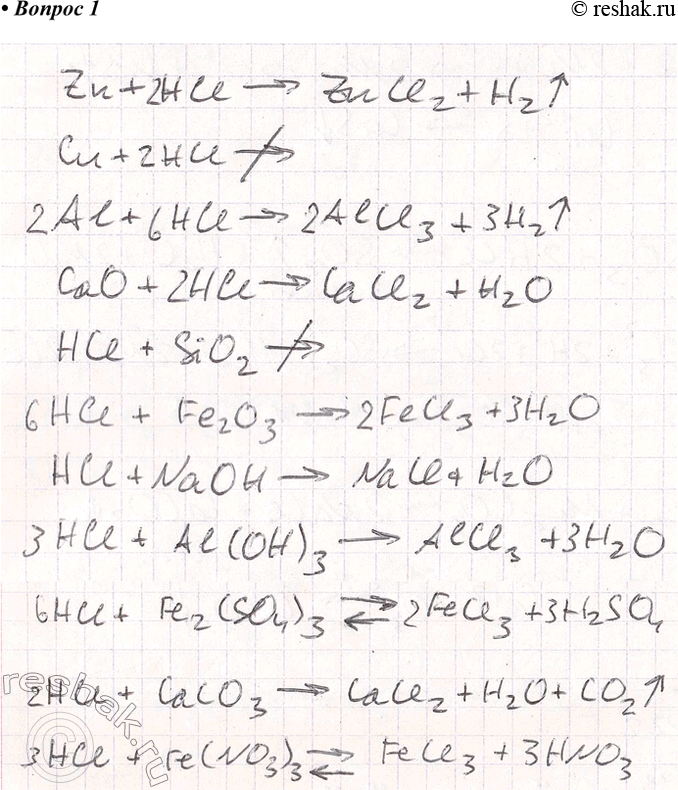 • Вопрос 1
© reshak.ru
Zn + 2HCl → ZnCl₂ + H₂↑
Cu + 2HCl ↛
2Al + 6HCl → 2AlCl₃ + 3H₂↑
CaO + 2HCl → CaCl₂ + H₂O
HCl + SiO₂ ↛
6HCl + Fe₂O₃ → 2FeCl₃ + 3H₂O
HCl + NaOH → NaCl + H₂O
3HCl + Al(OH)₃ → AlCl₃ + 3H₂O
6HCl + Fe₂(SO₄)₃ ⇄ 2FeCl₃ + 3H₂SO₄
2HCl + CaCO₃ → CaCl₂ + H₂O + CO₂↑
3HCl + Fe(NO₃)₃ ⇄ FeCl₃ + 3HNO₃
reshak.ru
©